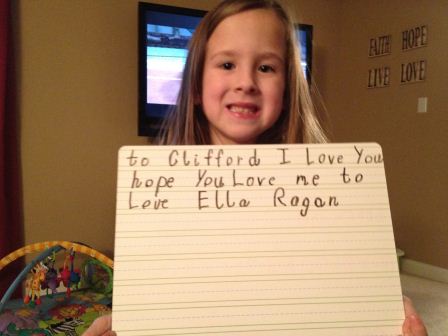 FAITH HOPE
LIVE LOVE
to Clifford I Love You
hope You Love me to
Love Ella Ragan